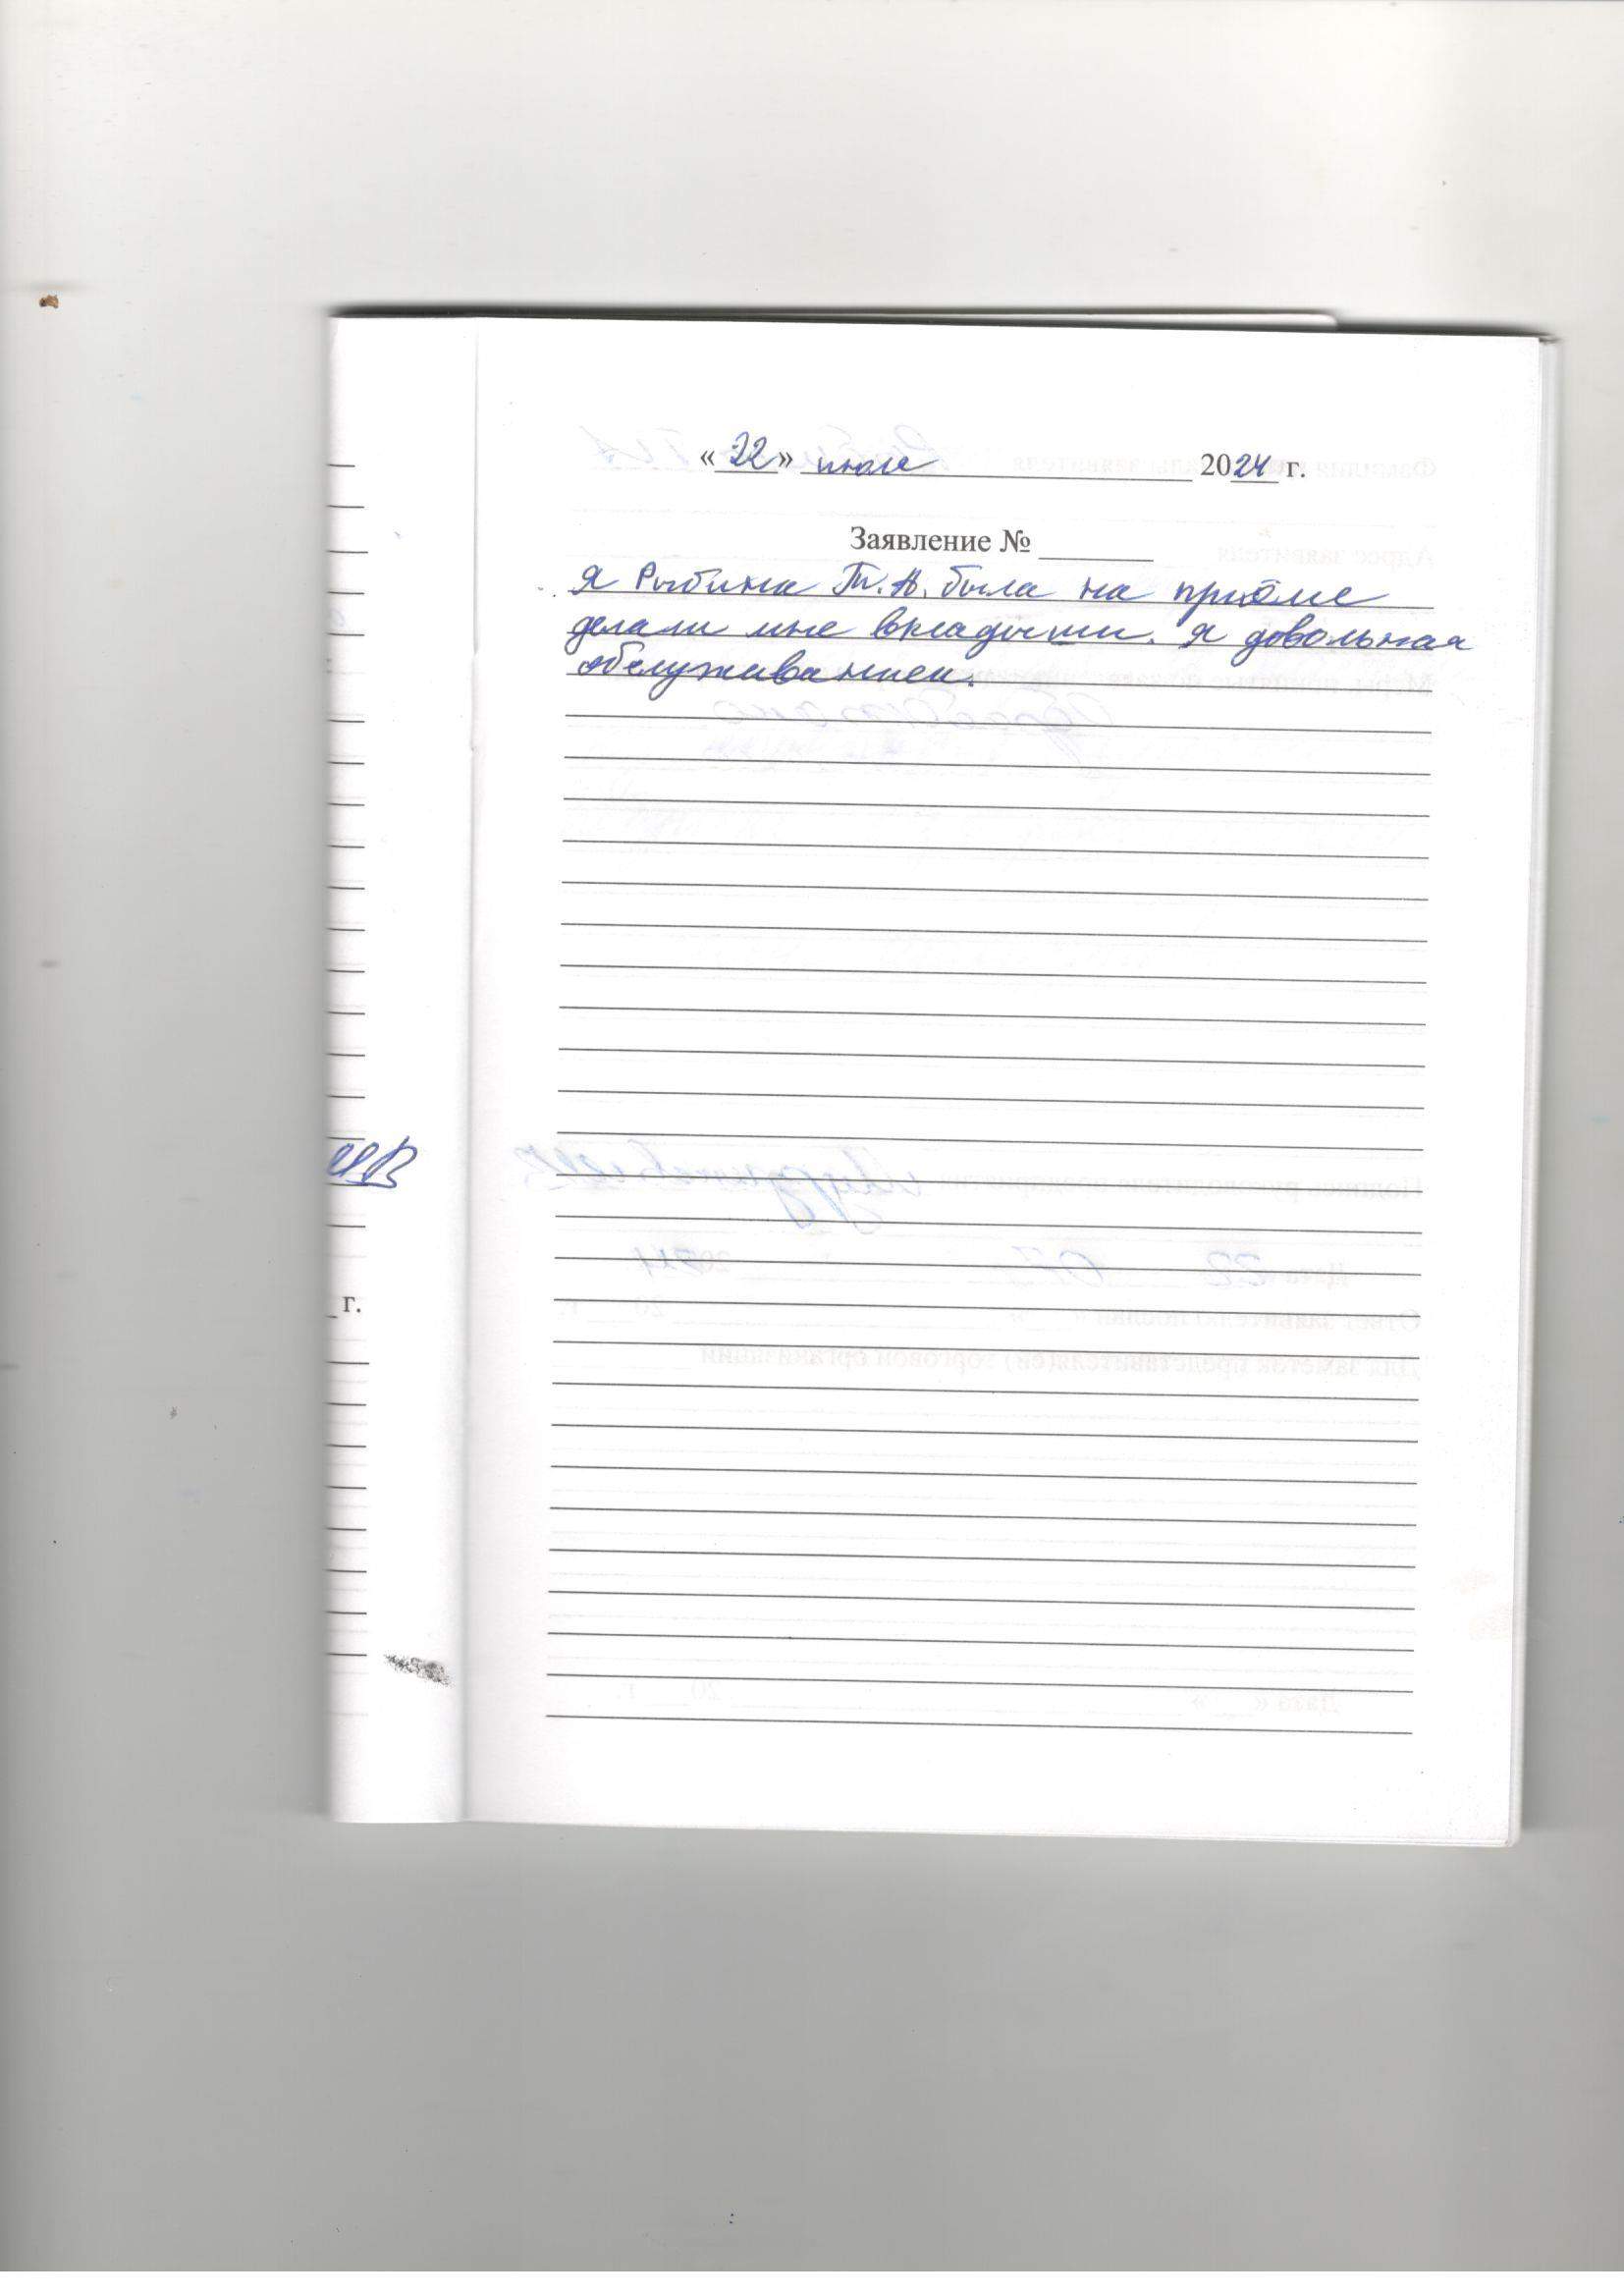 «22» июля 2024 г.
Заявление №
Я Рыбина Т.А. была на приёме
делали мне вкладыши. Я довольная
обслуживанием.
г.